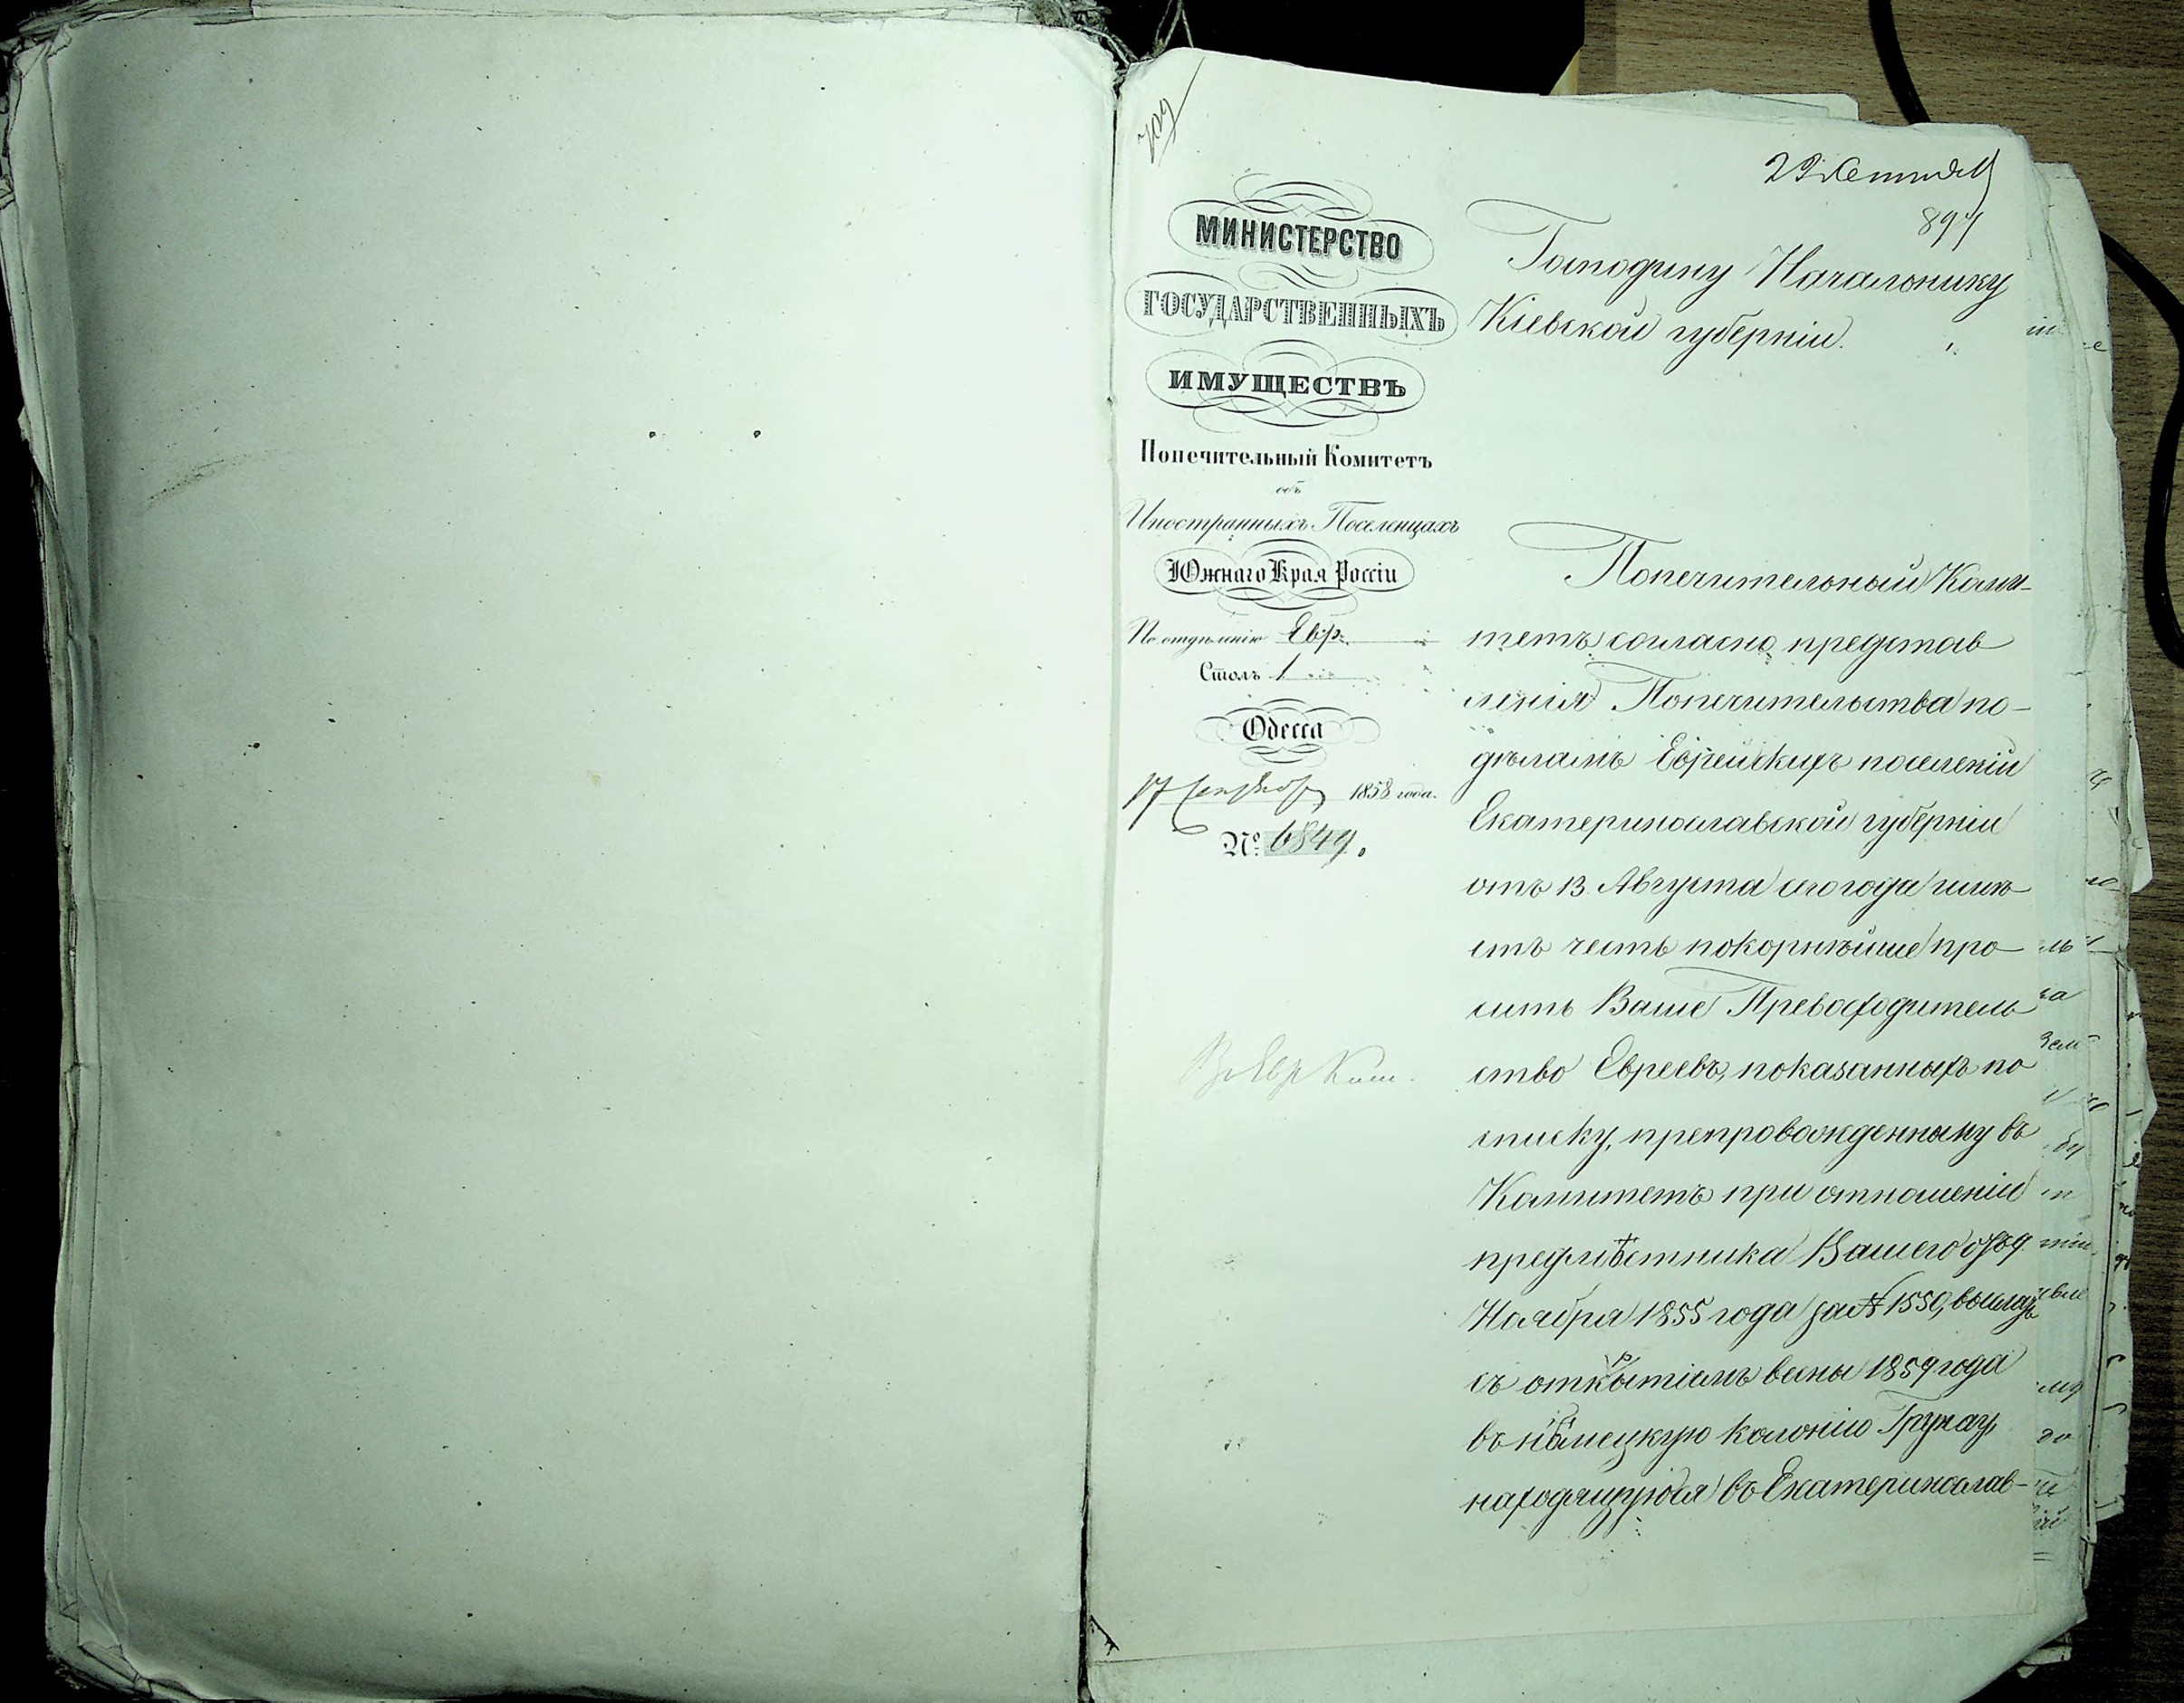 709
29 Сентяб
897
МИНИСТЕРСТВО
ГОСУДАРСТВЕННЫХЪ
ИМУЩЕСТВЪ
Попечительный Комитетъ
объ
Иностранныхъ Поселенцахъ
Южнаго Края Россіи
По отдѣленію Евр.
Столъ 1
Одесса
17 Сентября 1858 года.
№ 6849.
В Евр Ком.
Господину Начальнику
Кіевской губерніи.
Попечительный Коми-
тетъ согласно представ
ленія Попечительства по-
дѣламъ Еврейскихъ поселеній
Екатеринославской губерніи
отъ 13 Августа сего года имѣ-
етъ честь покорнѣйше про-
сить Ваше Превосходитель
ство Евреевъ, показанныхъ по
списку, препровожденному въ
Комитетъ при отношеніи
предмѣстника Вашего отъ 9
Ноября 1855 года за № 1550, выслать
съ открытіемъ весны 1859 года
въ нѣмецкую колонію Грунау,
находящуюся въ Екатеринослав-